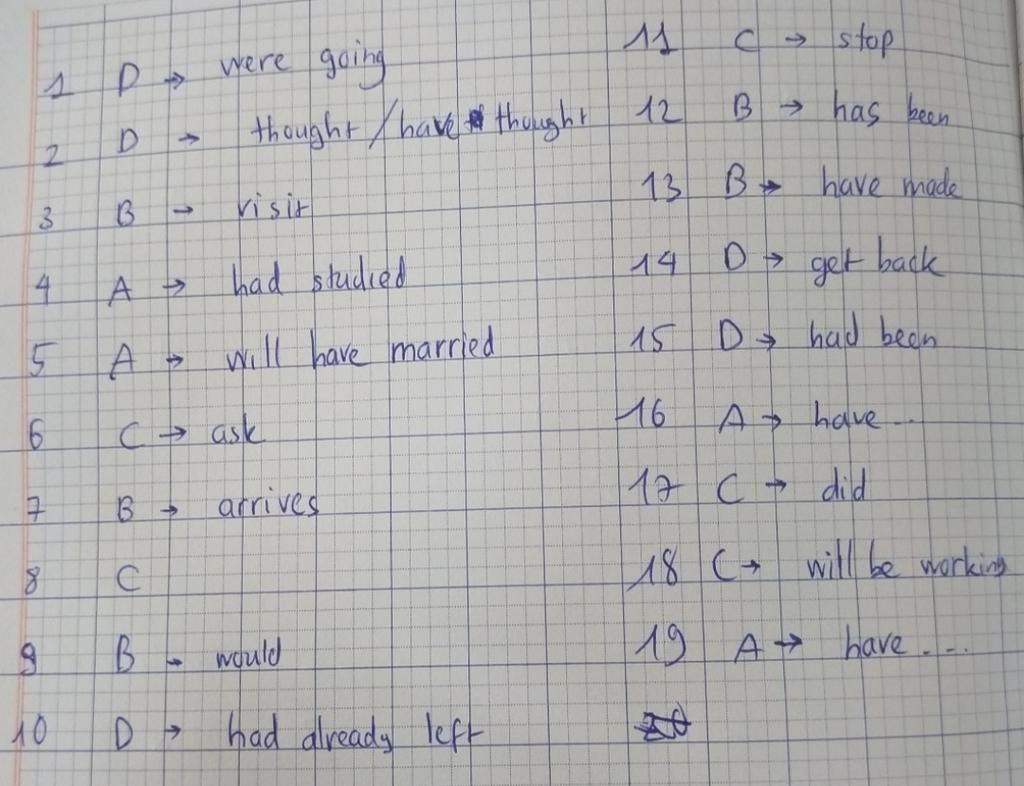 1 D → were going
2 D → thought / have thought
3 B → visit
4 A → had studied
5 A → will have married
6 C → ask
7 B → arrives
8 C
9 B → would
10 D → had already left
11 C → stop
12 B → has been
13 B → have made
14 D → get back
15 D → had been
16 A → have...
17 C → did
18 C → will be working
19 A → have....